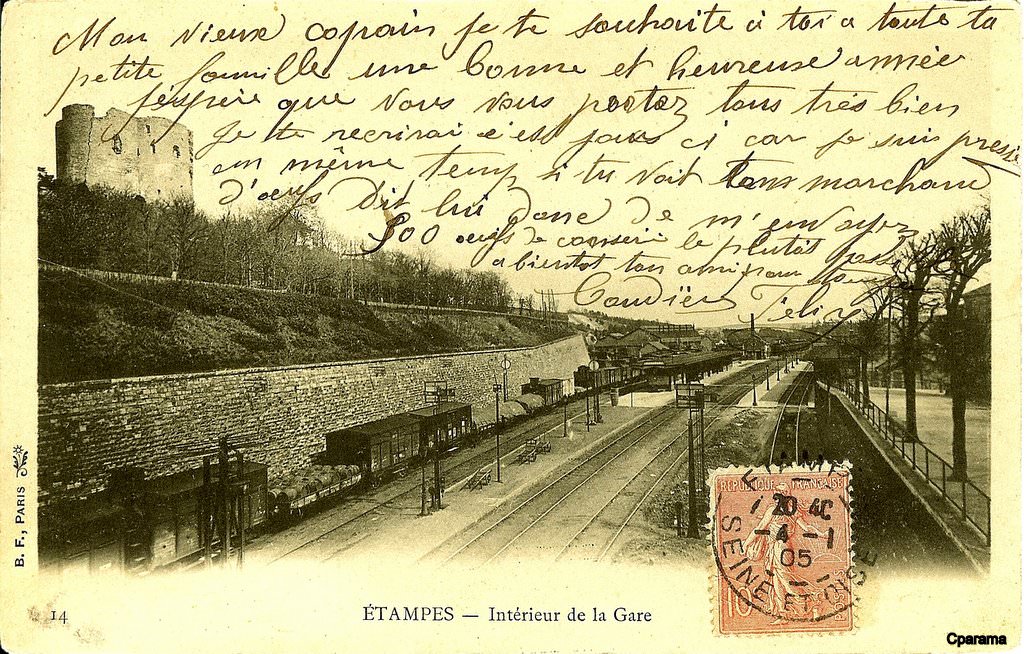 Mon vieux copain je te souhaite à toi a toute ta
petite famille une bonne et heureuse année
j'espère que vous vous portez tous très bien
Je te recrirai d'ici pour ci car je suis pressé
en même temps si tu voit tons marchand
d'oeufs dit lui donc de m'envoyez
300 oeufs de conserve le plutôt
a bientôt ton ami pour
Félix
B. F., PARIS
RÉPUBLIQUE FRANÇAISE
20
4 -1
05
SEINE ET OISE
10
14
ÉTAMPES — Intérieur de la Gare
Cparama